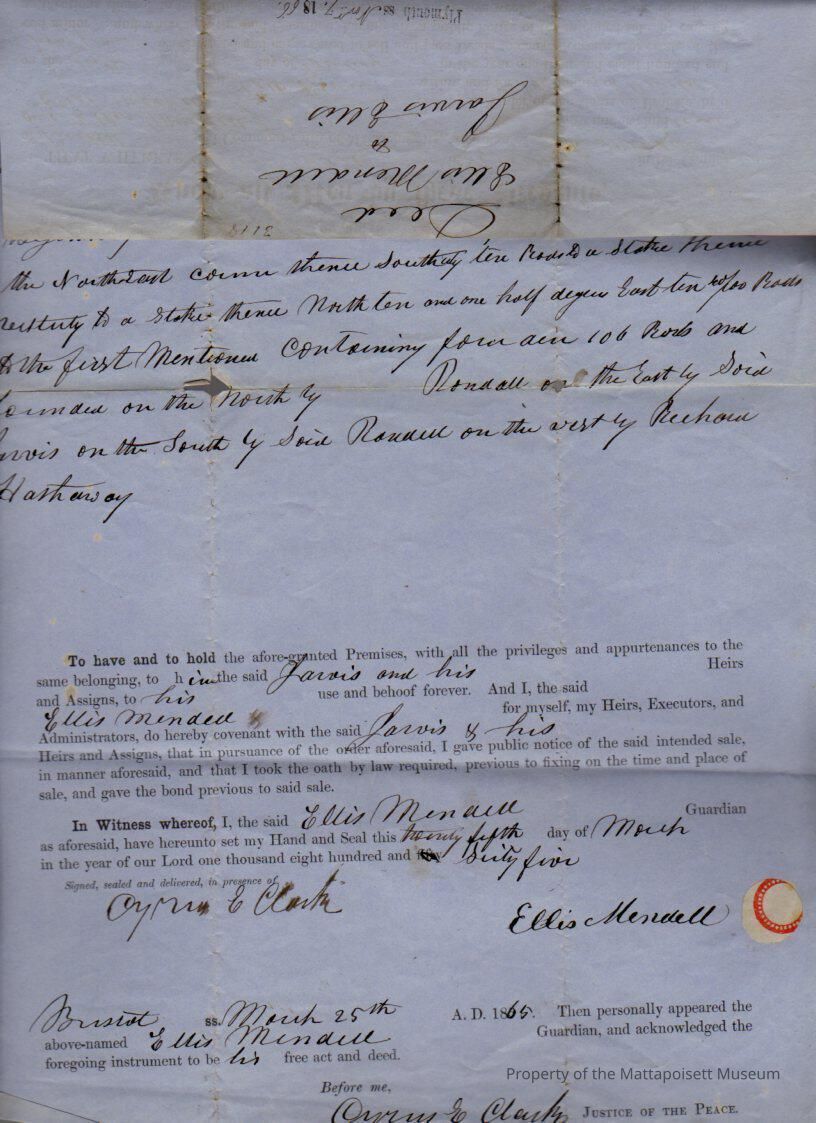 Plymouth ss. Nov. 7, 18
Jarvis Ellis
to
Ellis Mendell
Deed
the NorthEast corner thence Southerly ten Rods to a Stake thence
to a stake thence North ten and one half degrees East ten 40/100 Rods
to the first Mentioned Containing four acres 106 Rods and
bounded on the North by Randall on the East by Said
Jarvis on the South by Said Randell on the west by Richard
Hathaway
To have and to hold the afore-granted Premises, with all the privileges and appurtenances to the
same belonging, to him the said Jarvis and his Heirs
and Assigns, to his use and behoof forever. And I, the said
Ellis Mendell for myself, my Heirs, Executors, and
Administrators, do hereby covenant with the said Jarvis & his
Heirs and Assigns, that in pursuance of the order aforesaid, I gave public notice of the said intended sale,
in manner aforesaid, and that I took the oath by law required, previous to fixing on the time and place of
sale, and gave the bond previous to said sale.
In Witness whereof, I, the said Ellis Mendell Guardian
as aforesaid, have hereunto set my Hand and Seal this twenty fifth day of March
in the year of our Lord one thousand eight hundred and Sixty five
Signed, sealed and delivered, in presence of
Cyrus E Clark
Ellis Mendell
Bristol ss. March 25th A. D. 1865. Then personally appeared the
above-named Ellis Mendell Guardian, and acknowledged the
foregoing instrument to be his free act and deed.
Before me,
Cyrus E Clark JUSTICE OF THE PEACE.
Property of the Mattapoisett Museum